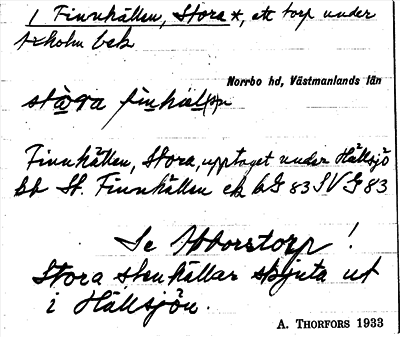 1 Finnhällen, Stora *, ett torp under
Axholm bek
Norrbo hd, Västmanlands län
stora
Finnhällen, Stora, upptaget under Hällsjö
bb St. Finnhällen ek bG 83 SVG 83
Se Abborstorp!
Stora stenhällar skjuta ut
i Hällsjön.
A. THORFORS 1933